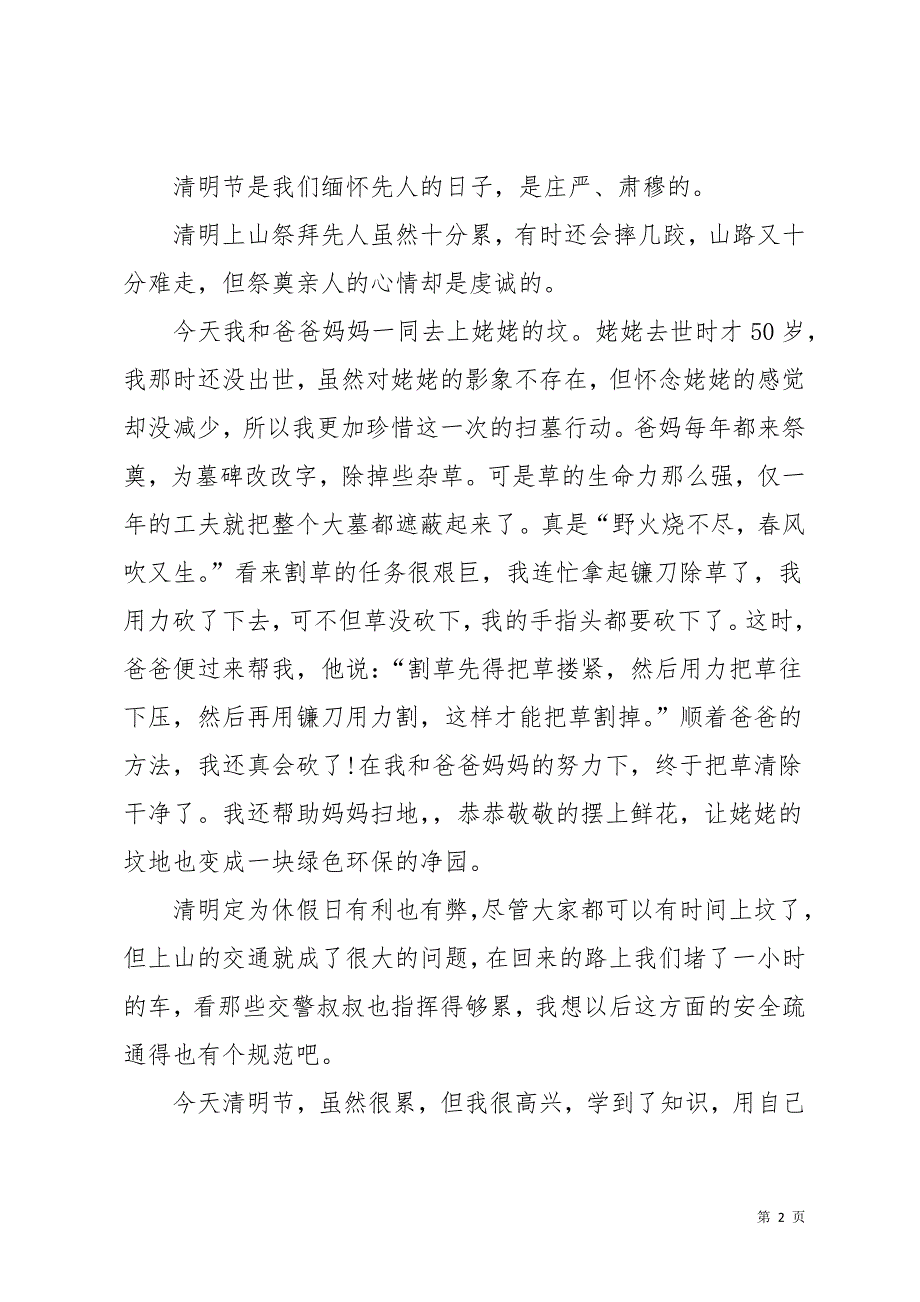 清明节是我们缅怀先人的日子，是庄严、肃穆的。
清明上山祭拜先人虽然十分累，有时还会摔几跤，山路又十
分难走，但祭奠亲人的心情却是虔诚的。
今天我和爸爸妈妈一同去上姥姥的坟。姥姥去世时才 50 岁，
我那时还没出世，虽然对姥姥的影象不存在，但怀念姥姥的感觉
却没减少，所以我更加珍惜这一次的扫墓行动。爸妈每年都来祭
奠，为墓碑改改字，除掉些杂草。可是草的生命力那么强，仅一
年的工夫就把整个大墓都遮蔽起来了。真是“野火烧不尽，春风
吹又生。”看来割草的任务很艰巨，我连忙拿起镰刀除草了，我
用力砍了下去，可不但草没砍下，我的手指头都要砍下了。这时，
爸爸便过来帮我，他说：“割草先得把草搂紧，然后用力把草往
下压，然后再用镰刀用力割，这样才能把草割掉。”顺着爸爸的
方法，我还真会砍了!在我和爸爸妈妈的努力下，终于把草清除
干净了。我还帮助妈妈扫地，，恭恭敬敬的摆上鲜花，让姥姥的
坟地也变成一块绿色环保的净园。
清明定为休假日有利也有弊，尽管大家都可以有时间上坟了，
但上山的交通就成了很大的问题，在回来的路上我们堵了一小时
的车，看那些交警叔叔也指挥得够累，我想以后这方面的安全疏
通得也有个规范吧。
今天清明节，虽然很累，但我很高兴，学到了知识，用自己
第 2 页